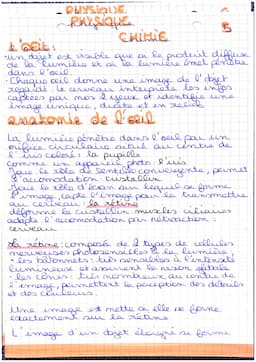 - PHYSIQUE
PHYSIQUE
CHIMIE
5
L'oeil :
- un objet est visible que si le produit diffuse
de la lumière et si la lumière émet pénètre
dans l'oeil
- Chaque oeil donne une image de l'objet
regardé : le cerveau interprète les infos
captées par nos 2 yeux et identifie une
image unique, droite et en relief
anatomie de l'oeil
La lumière pénètre dans l'oeil par un
orifice circulaire situé au centre de
l'iris coloré : la pupille
comme un appareil photo : l'iris
Joue le rôle de lentille convergente, permet
l'acomodation : cristallin
Joue le rôle d'écran sur lequel se forme
l'image, capte l'image pour la transmettre
au cerveau : la rétine
déforme le cristallin muscles ciliaires
adapte l'acomodation par rétraction :
cerveau
La rétine : composés de 2 types de cellules
nerveuses photosensibles à la lumière
• les bâtonnets : très sensibles à l'intensité
lumineuse et assurent la vision
• les cônes : très nombreux au centre de
l'image, permettent la perception des détails
et des couleurs.
Une image est nette si elle se forme
exactement sur la rétine
L'image d'un objet éloigné se forme